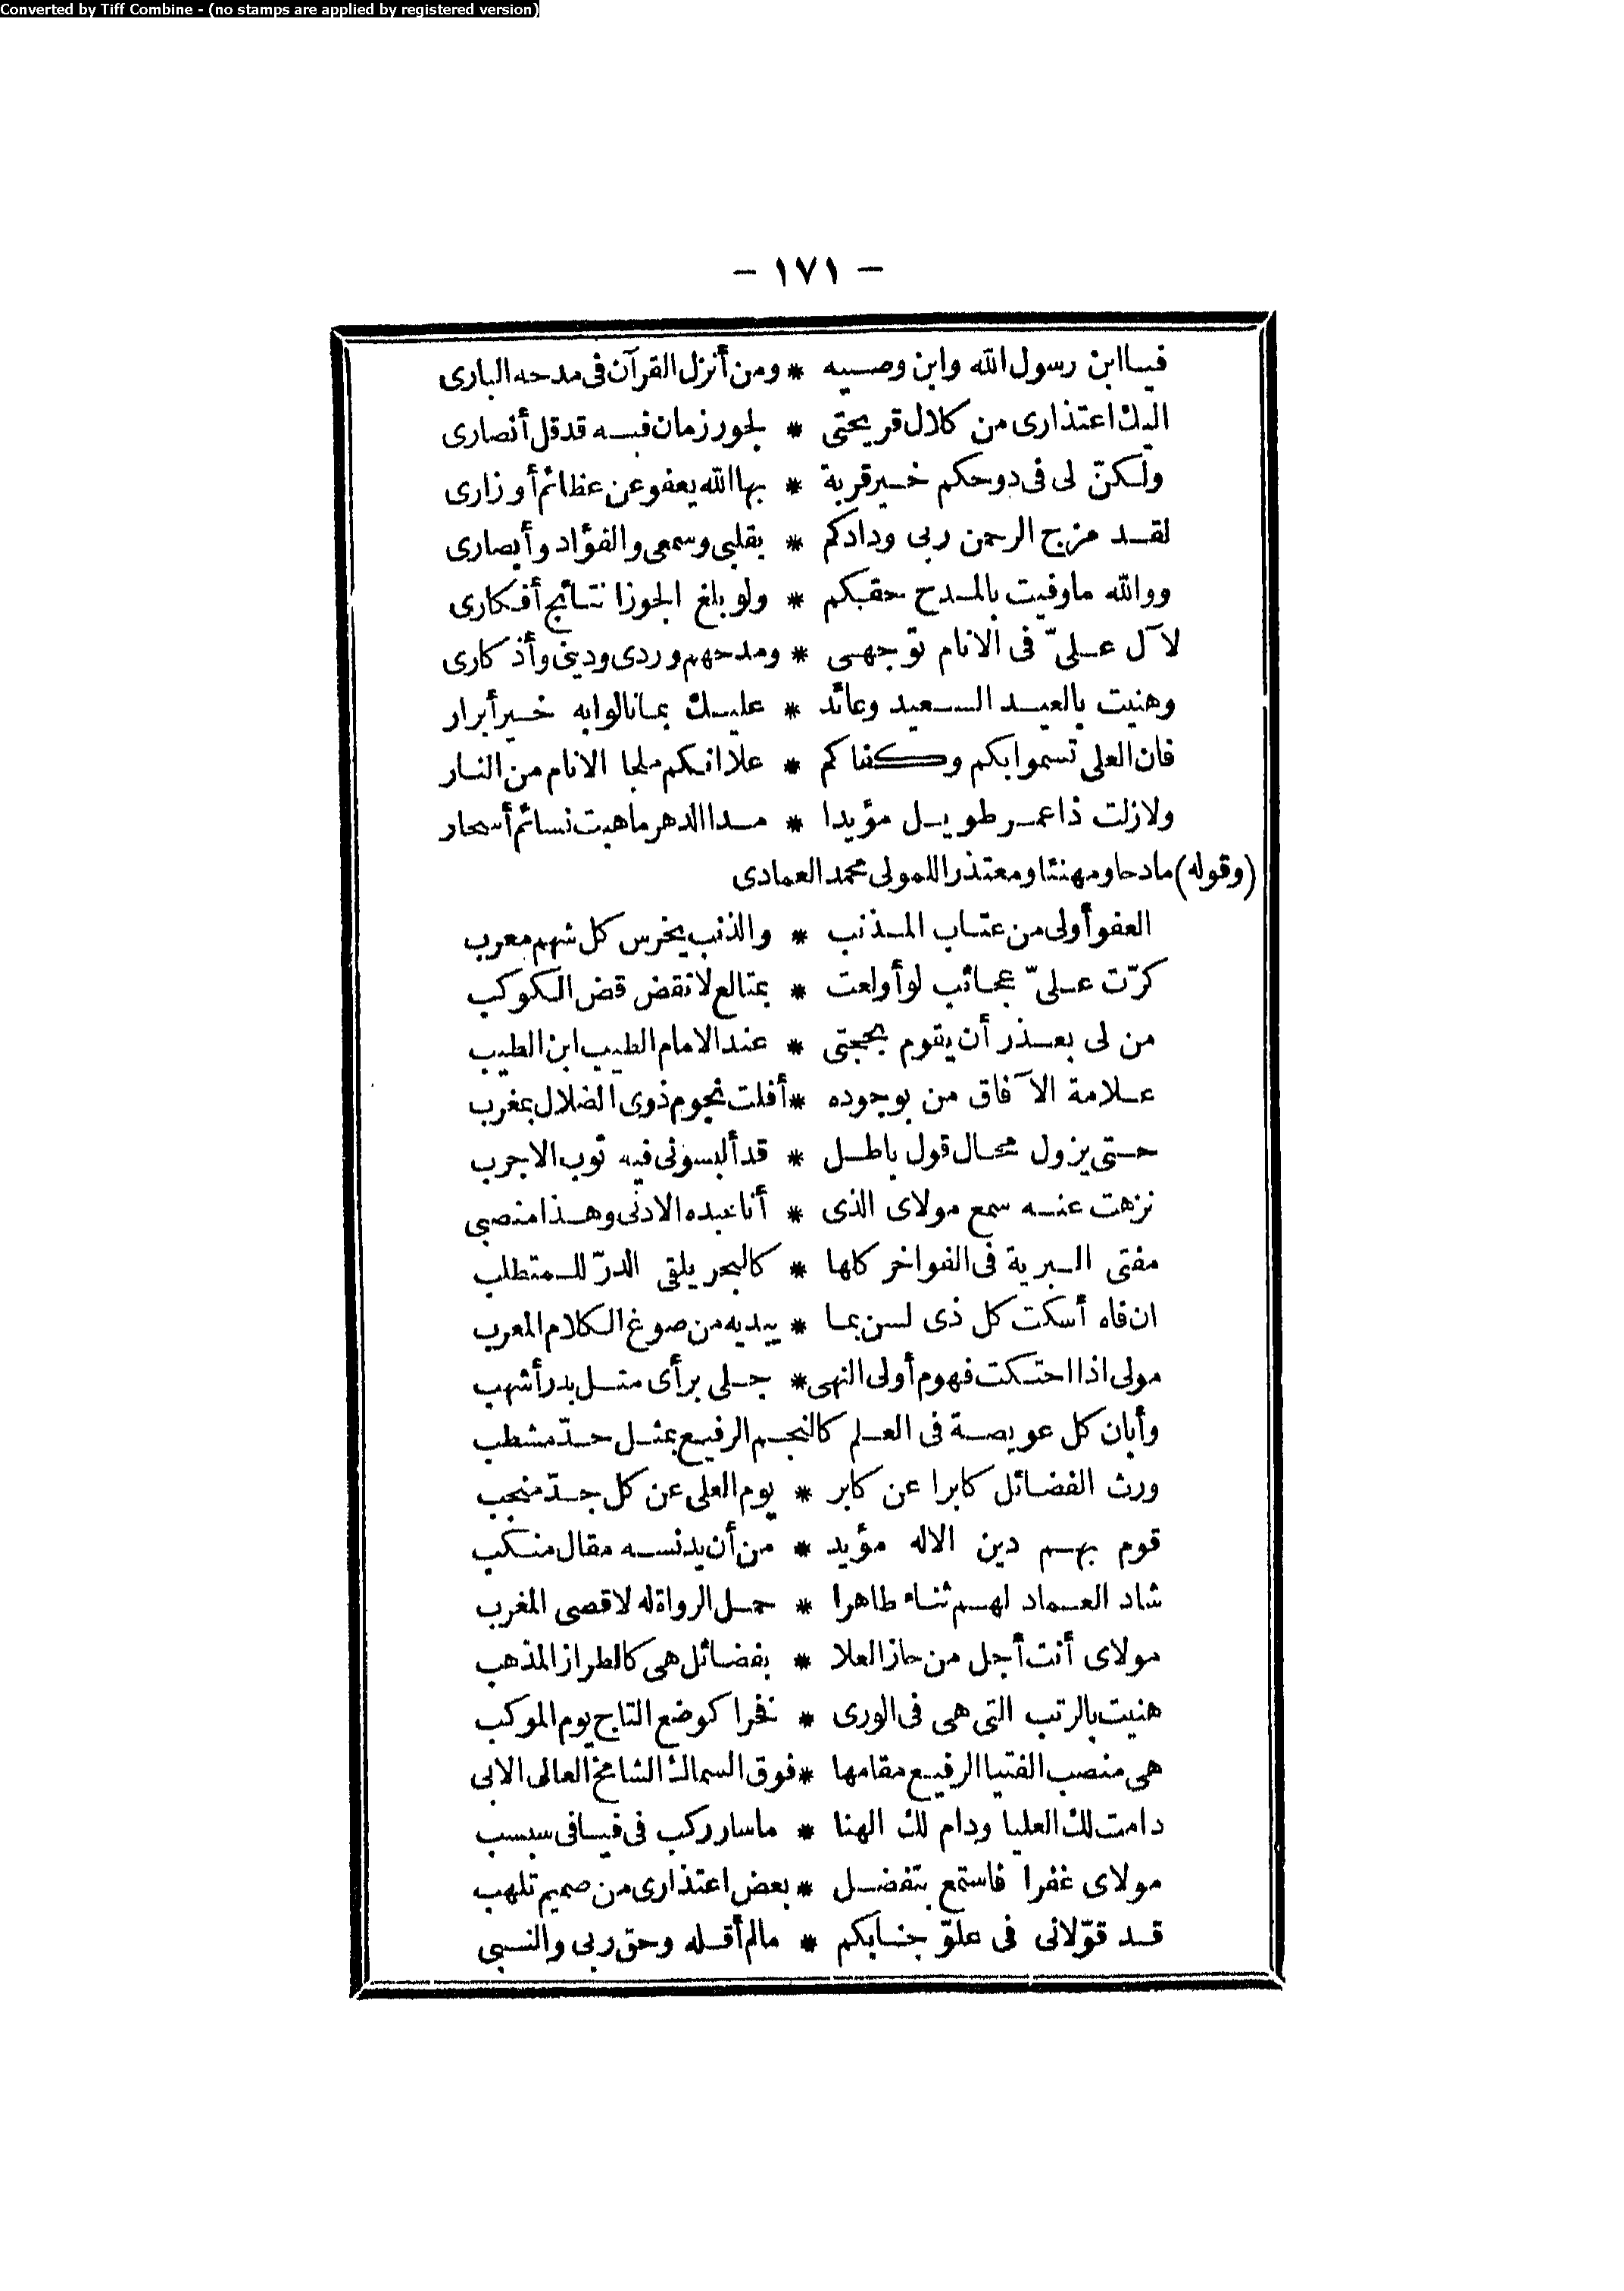 Converted by Tiff Combine - (no stamps are applied by registered version)
- ١٧١ -
فيا ابن رسول الله وابن وصيه * ومن أنزل القرآن فى مدحه البارى
اليك اعتذارى من كلال قريحتى * لجور زمان فيه قد قل أنصارى
ولكنّ لى فى دوحكم خير قربة * بها الله يعفو عن عظائم أوزارى
لقد مزج الرحمن ربى ودادكم * بقلبى وسمعى والفؤاد وأبصارى
ووالله ماوفيت بالمدح حقبكم * ولو بلغ الجوزا نتائج أفكارى
لآل علىّ فى الانام توجهى * ومدحهم وردى ودينى وأذكارى
وهنيت بالعيد السعيد وعائد * عليك بمانالوا به خير أبرار
فان العلى تسموا بكم وكفاكم * علا انكم ملجا الانام من النار
ولازلت ذا عمر طويل مؤيدا * مدا الدهر ما هبت نسائم أسحار
(وقوله) مادحا ومهنئا ومعتذرا للمولى محمد العمادى
العفو أولى من عتاب المذنب * والذنب يخرس كل شهم معرب
كرّت علىّ عجائب لو أولعت * بمتالع لانقض قض الكوكب
من لى بعذر أن يقوم بحجتى * عند الامام الطيب ابن الطيب
علامة الآفاق من بوجوده * أفلت نجوم ذوى الضلال بمغرب
حتى يزول محال قول باطل * قد ألبسونى فيه ثوب الاجرب
نزهت عنه سمع مولاى الذى * أنا عبده الادنى وهذا منصبى
مفتى البرية فى الفواخر كلها * كالبحر يلقى الدرّ للمتطلب
ان فاه أسكت كل ذى لسن بما * يبديه من صوغ الكلام المعرب
مولى اذا احتكت فهوم أولى النهى * جلى برأى مثل بدر أشهب
وأبان كل عويصة فى العلم كالنجم الرفيع بمثل حدّ مشطب
ورث الفضائل كابرا عن كابر * يوم العلى عن كل جدّ منجب
قوم بهم دين الاله مؤيد * من أن يدنسه مقال منكب
شاد العماد لهم ثناء طاهرا * حمل الرواة له لاقصى المغرب
مولاى أنت أجل من حاز العلا * بفضائل هى كالطراز المذهب
هنيت بالرتب التى هى فى الورى * فخرا كوضع التاج يوم الموكب
هى منصب الفتيا الرفيع مقامها * فوق السماك الشامخ العالى الابى
دامت لك العليا ودام لك الهنا * ماسار ركب فى فيافى سبسب
مولاى غفرا فاستمع بتفضل * بعض اعتذارى من صميم تلهب
قد قوّلانى فى علوّ جنابكم * مالم أقله وحق ربى والنبى